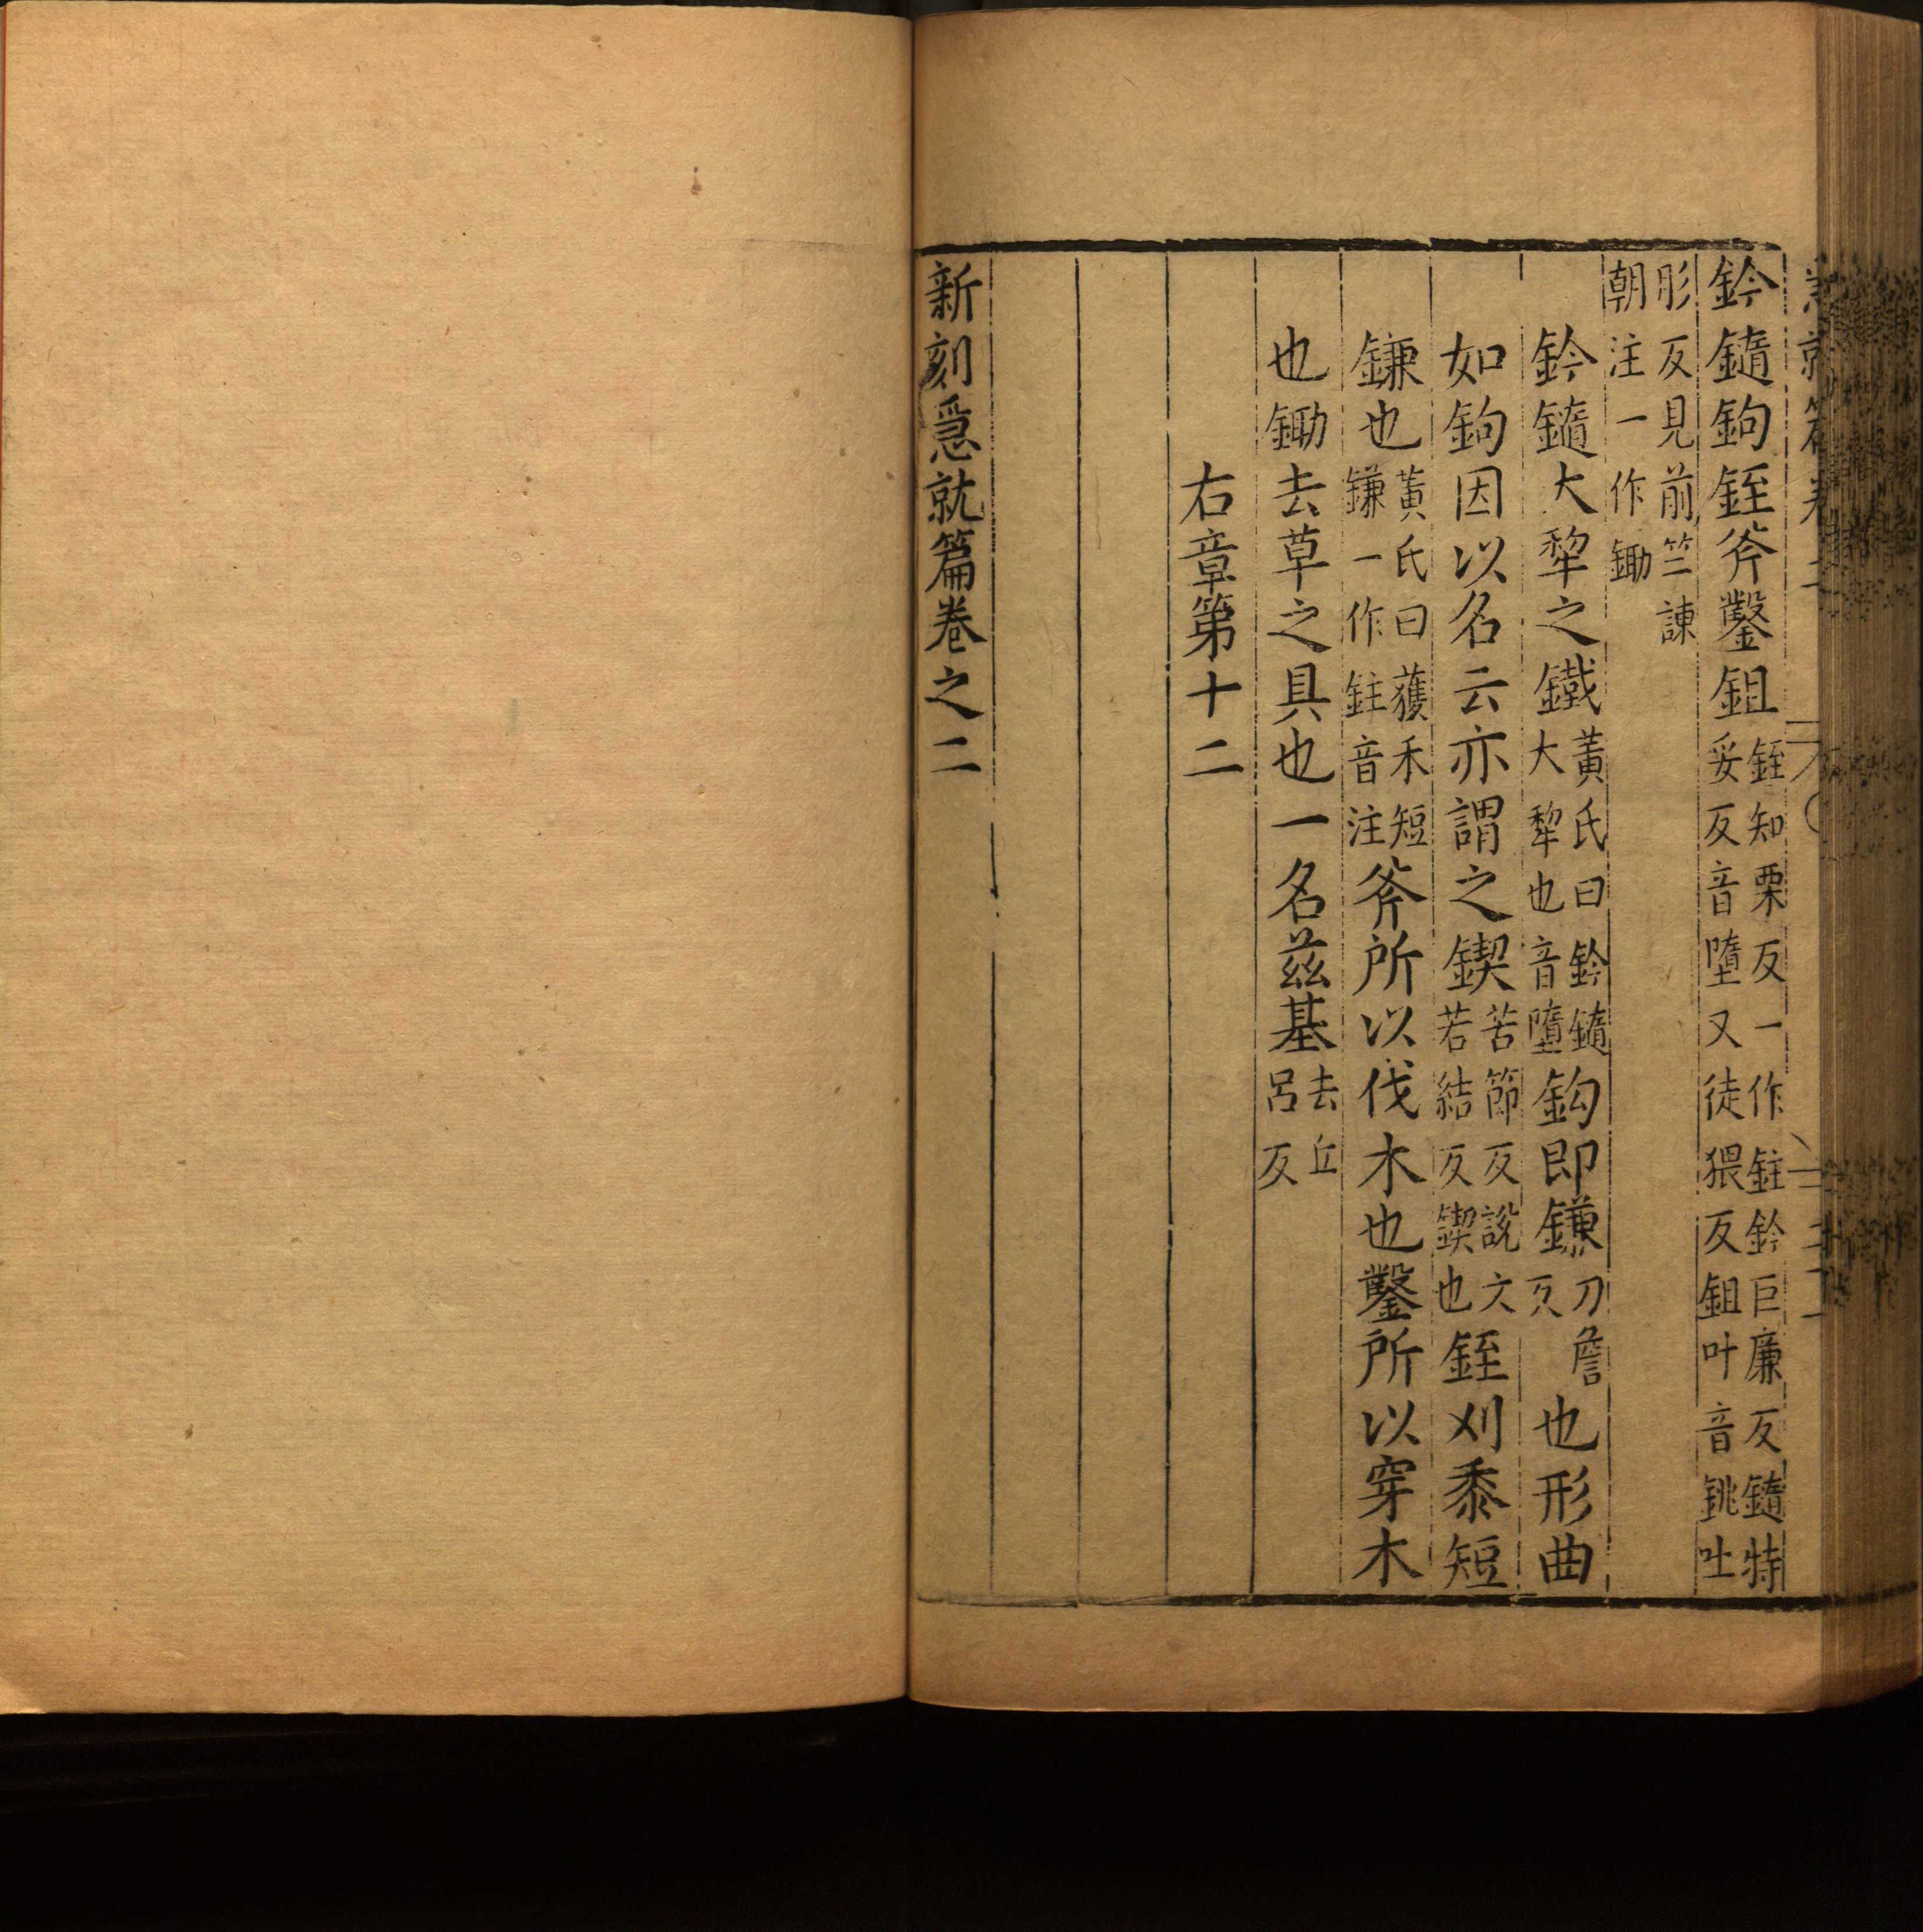 鈐䥯鉤銍斧鑿鉏銍知栗反一作鉒鈐巨廉反䥯特妥反音墮又徒猥反鉏叶音銚吐
彫反見前竺諫朝注一作鋤
鈐䥯大犂之鐵黃氏曰鈐䥯大犂也音墮鈎即鎌刀詹反也形曲
如鉤因以名云亦謂之鍥苦節反說文若結反鍥也銍刈黍短
鎌也黃氏曰穫禾短鎌一作鉒音注斧所以伐木也鑿所以穿木
也鋤去草之具也一名茲基去丘呂反
右章第十二
新刻急就篇卷之二